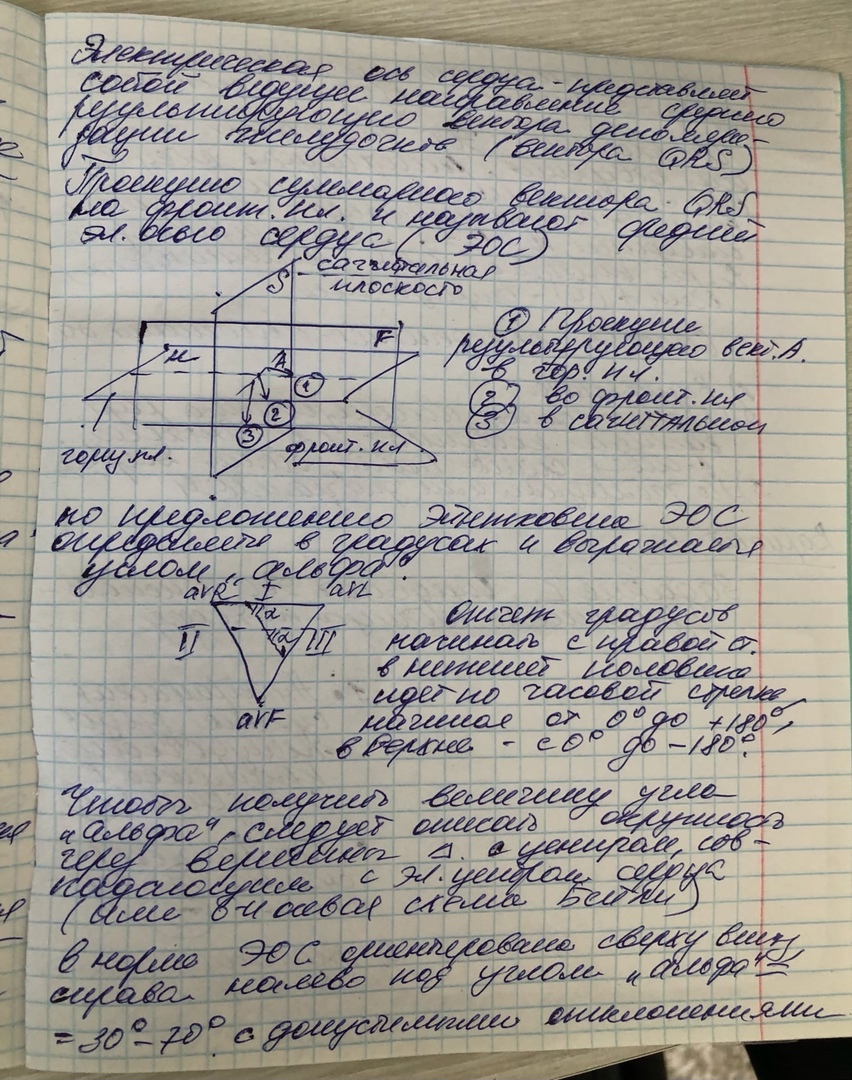 Электрическая ось сердца - представляет
собой ведущее направление средного
результирующего вектора деполяри-
зации желудочков (вектора QRS)
Проекцию суммарного вектора QRS
на фронт. пл. и называют средней
эл. осью сердца (ЭОС)
S - сагиттальная
плоскость
F
H
A
1
2
3
гориз. пл.
фронт. пл
① Проекции
результирующего вект. А.
в гор. пл.
② во фронт. пл
③ в сагиттальной
по предложению Эйтховена ЭОС
определяете в градусах и выражаете
углом „альфа"
avR I avL
α
II α III
avF
Отсчет градусов
начинать с правой ст.
в нижней половине
идет по часовой стрелке,
начиная от 0° до +180°,
в верхне - с 0° до -180°.
Чтобы получить величину угла
„альфа", следует описать окружность
через вершины Δ. с центром, сов-
падающим с эл. центром сердца
(или 6-и осевая схема Бейли)
В норме ЭОС ориентирована сверху вниз
справа налево под углом „альфа" =
= 30° - 70° с допустимыми отклонениями